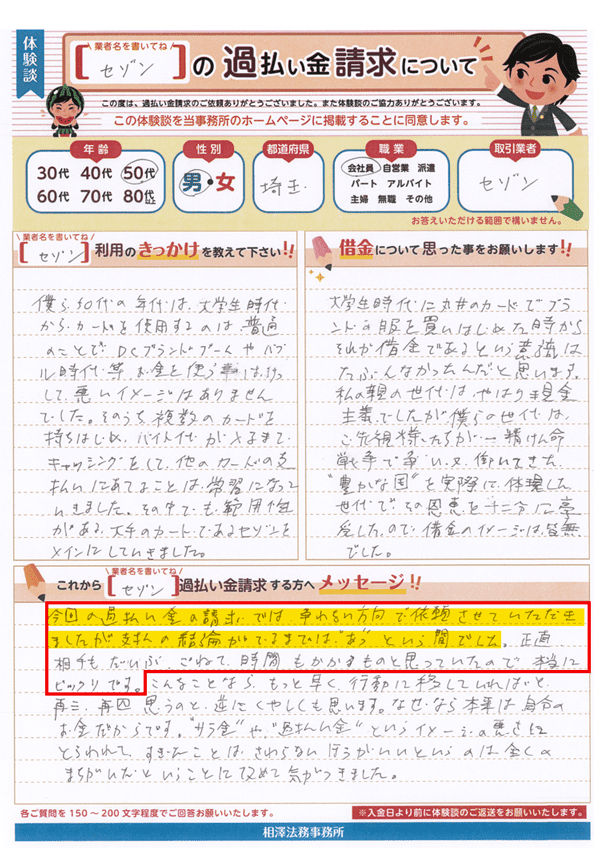 体験談
業者名を書いてね
[セゾン]の過払い金請求について
この度は、過払い金請求のご依頼ありがとうございました。また体験談のご協力ありがとうございます。
この体験談を当事務所のホームページに掲載することに同意します。
年齢
30代 40代 50代
60代 70代 80代以上
性別
男・女
都道府県
埼玉
職業
会社員 自営業 派遣
パート アルバイト
主婦 無職 その他
取引業者
セゾン
お答えいただける範囲で構いません。
業者名を書いてね
[セゾン]利用のきっかけを教えて下さい!!
僕ら50代の年代は、大学生時代
からカードを使用するのは、普通
のことで、DCブランドブームやバブ
ル時代等、お金を使う事は、けっ
して、悪いイメージはありません
でした。そのうち、複数のカードを
持ちはじめ、バイト代が入るまで、
キャッシングをして、他のカードの支
払いにあてることは、常習になって
いきました。その中でも、範用性
がある、大手のカードであるセゾンを
メインにしていきました。
借金について思った事をお願いします!!
大学生時代に丸井のカードでブラ
ンドの服を買いはじめた時から
それが借金であるという意識は
たぶんなかったんだと思います。
私の親の世代は、やはり現金
主義でしたが僕らの世代は、
ご先祖様たちが一精けん命
戦争で争い、又、働いてきた、
“豊かな国”を実際に、体現した
世代で、その恩恵を十二分に享
受したので、借金のイメージは、皆無
でした。
これから[セゾン]過払い金請求する方へメッセージ!!
業者名を書いてね
今回の過払い金の請求では、争わない方向で依頼させていただき
ましたが支払の結論がでるまでは、“あっ”という間でした。正直
相手も、だいぶ、ごねて、時間もかかるものと思っていたので、本当に
ビックリです。こんなことなら、もっと早く、行動に移していればと、
再三、再四思うのと、逆にくやしくも思います。なぜなら本来は自分の
お金だからです。“サラ金”や、“過払い金”というイメージの悪さに
とらわれて、すぎたことは、さわらないほうがいいというのは全くの
まちがいだということに改めて気がつきました。
各ご質問を150~200文字程度でご回答お願いいたします。
※入金日より前に体験談のご返送をお願いいたします。
相澤法務事務所